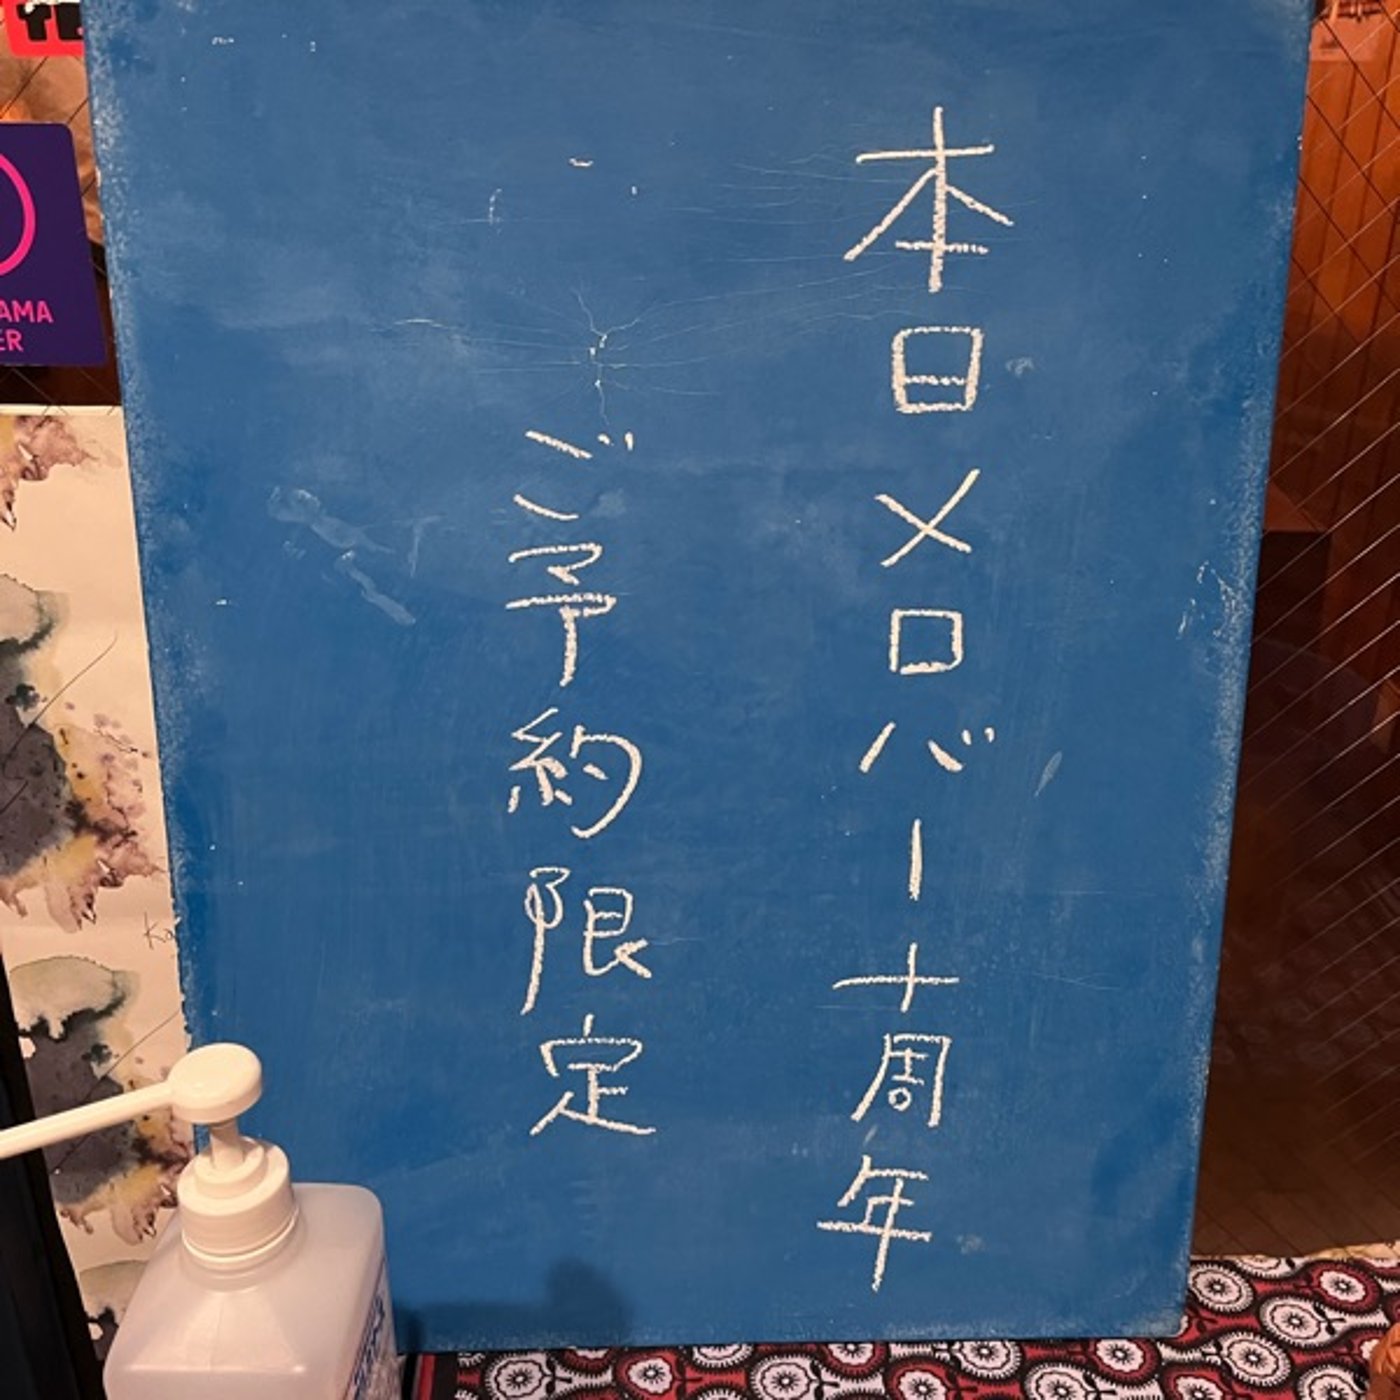 本日メロバー十周年
ご予約限定
AMA
ER